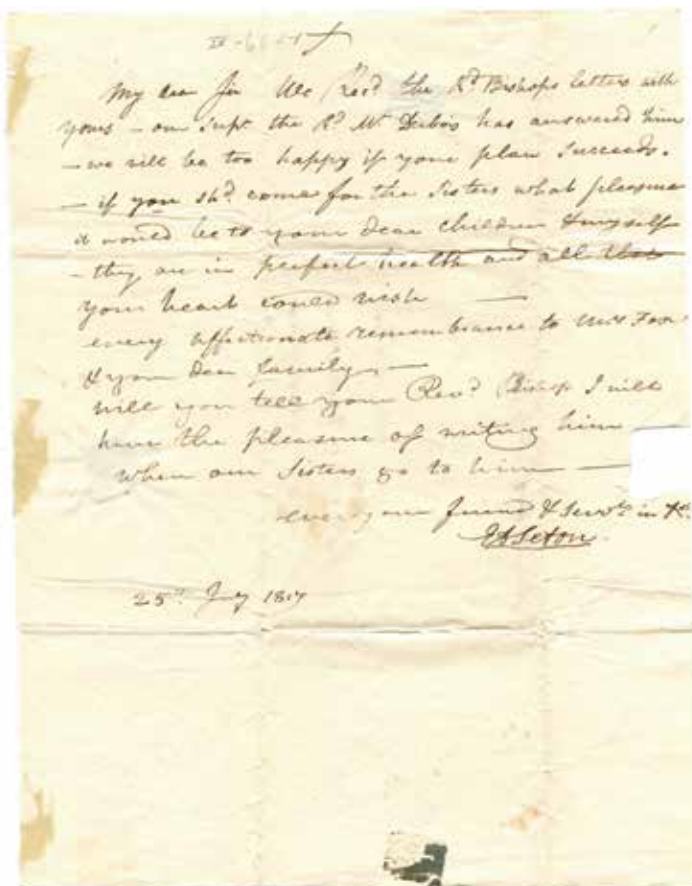 My dear Sir We Recd the Rd Bishops letters with
yours – our Supr the Rd Mr Dubois has answered him
– we will be too happy if your plan Succeeds.
– if you shd come for the Sisters what pleasure
it would be to your dear children & myself
– they are in perfect health and all that
your heart could wish —
every affectionate remembrance to Mrs Fox
& your dear family, —
will you tell your Revd Bishop I will
have the pleasure of writing him
when our Sisters go to him —
ever your friend & Servt in
EASeton
25th July 1817